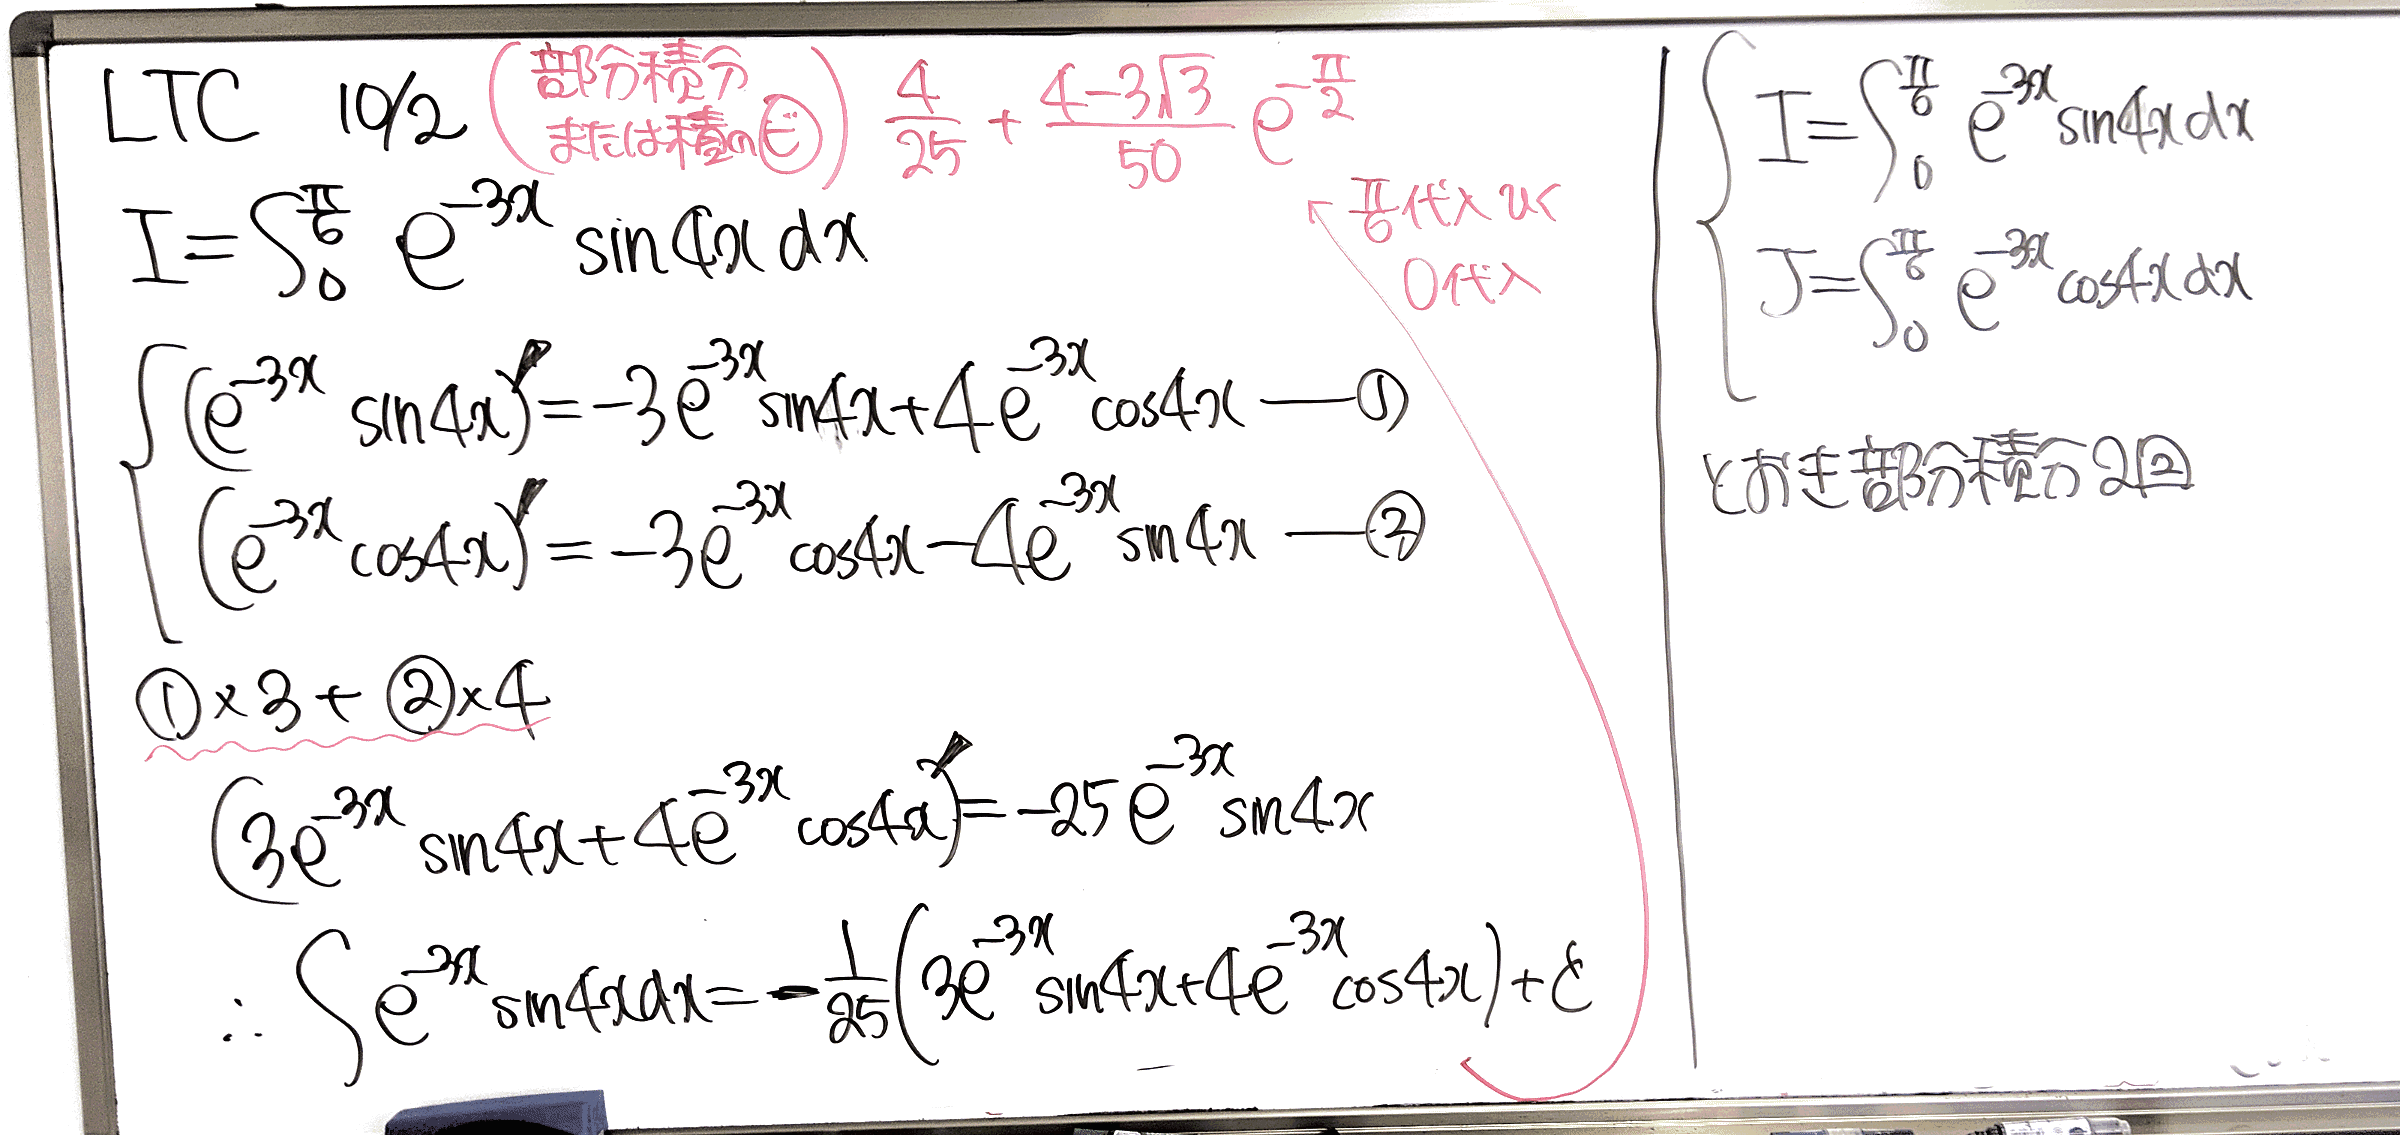 LTC 10/2 (部分積分 または積の㋪) 4/25 + (4-3√3)/50 e^{-π/2}
I=∫_0^{π/6} e^{-3x} sin4x dx
π/6代入 ひく
0代入
(e^{-3x} sin4x)'=-3e^{-3x}sin4x+4e^{-3x}cos4x ―①
(e^{-3x}cos4x)'=-3e^{-3x}cos4x-4e^{-3x}sin4x ―②
①×3+②×4
(3e^{-3x}sin4x+4e^{-3x}cos4x)'=-25e^{-3x}sin4x
∴∫e^{-3x}sin4xdx=-1/25(3e^{-3x}sin4x+4e^{-3x}cos4x)+C
I=∫_0^{π/6} e^{-3x}sin4xdx
J=∫_0^{π/6} e^{-3x}cos4xdx
とおき部分積分2回